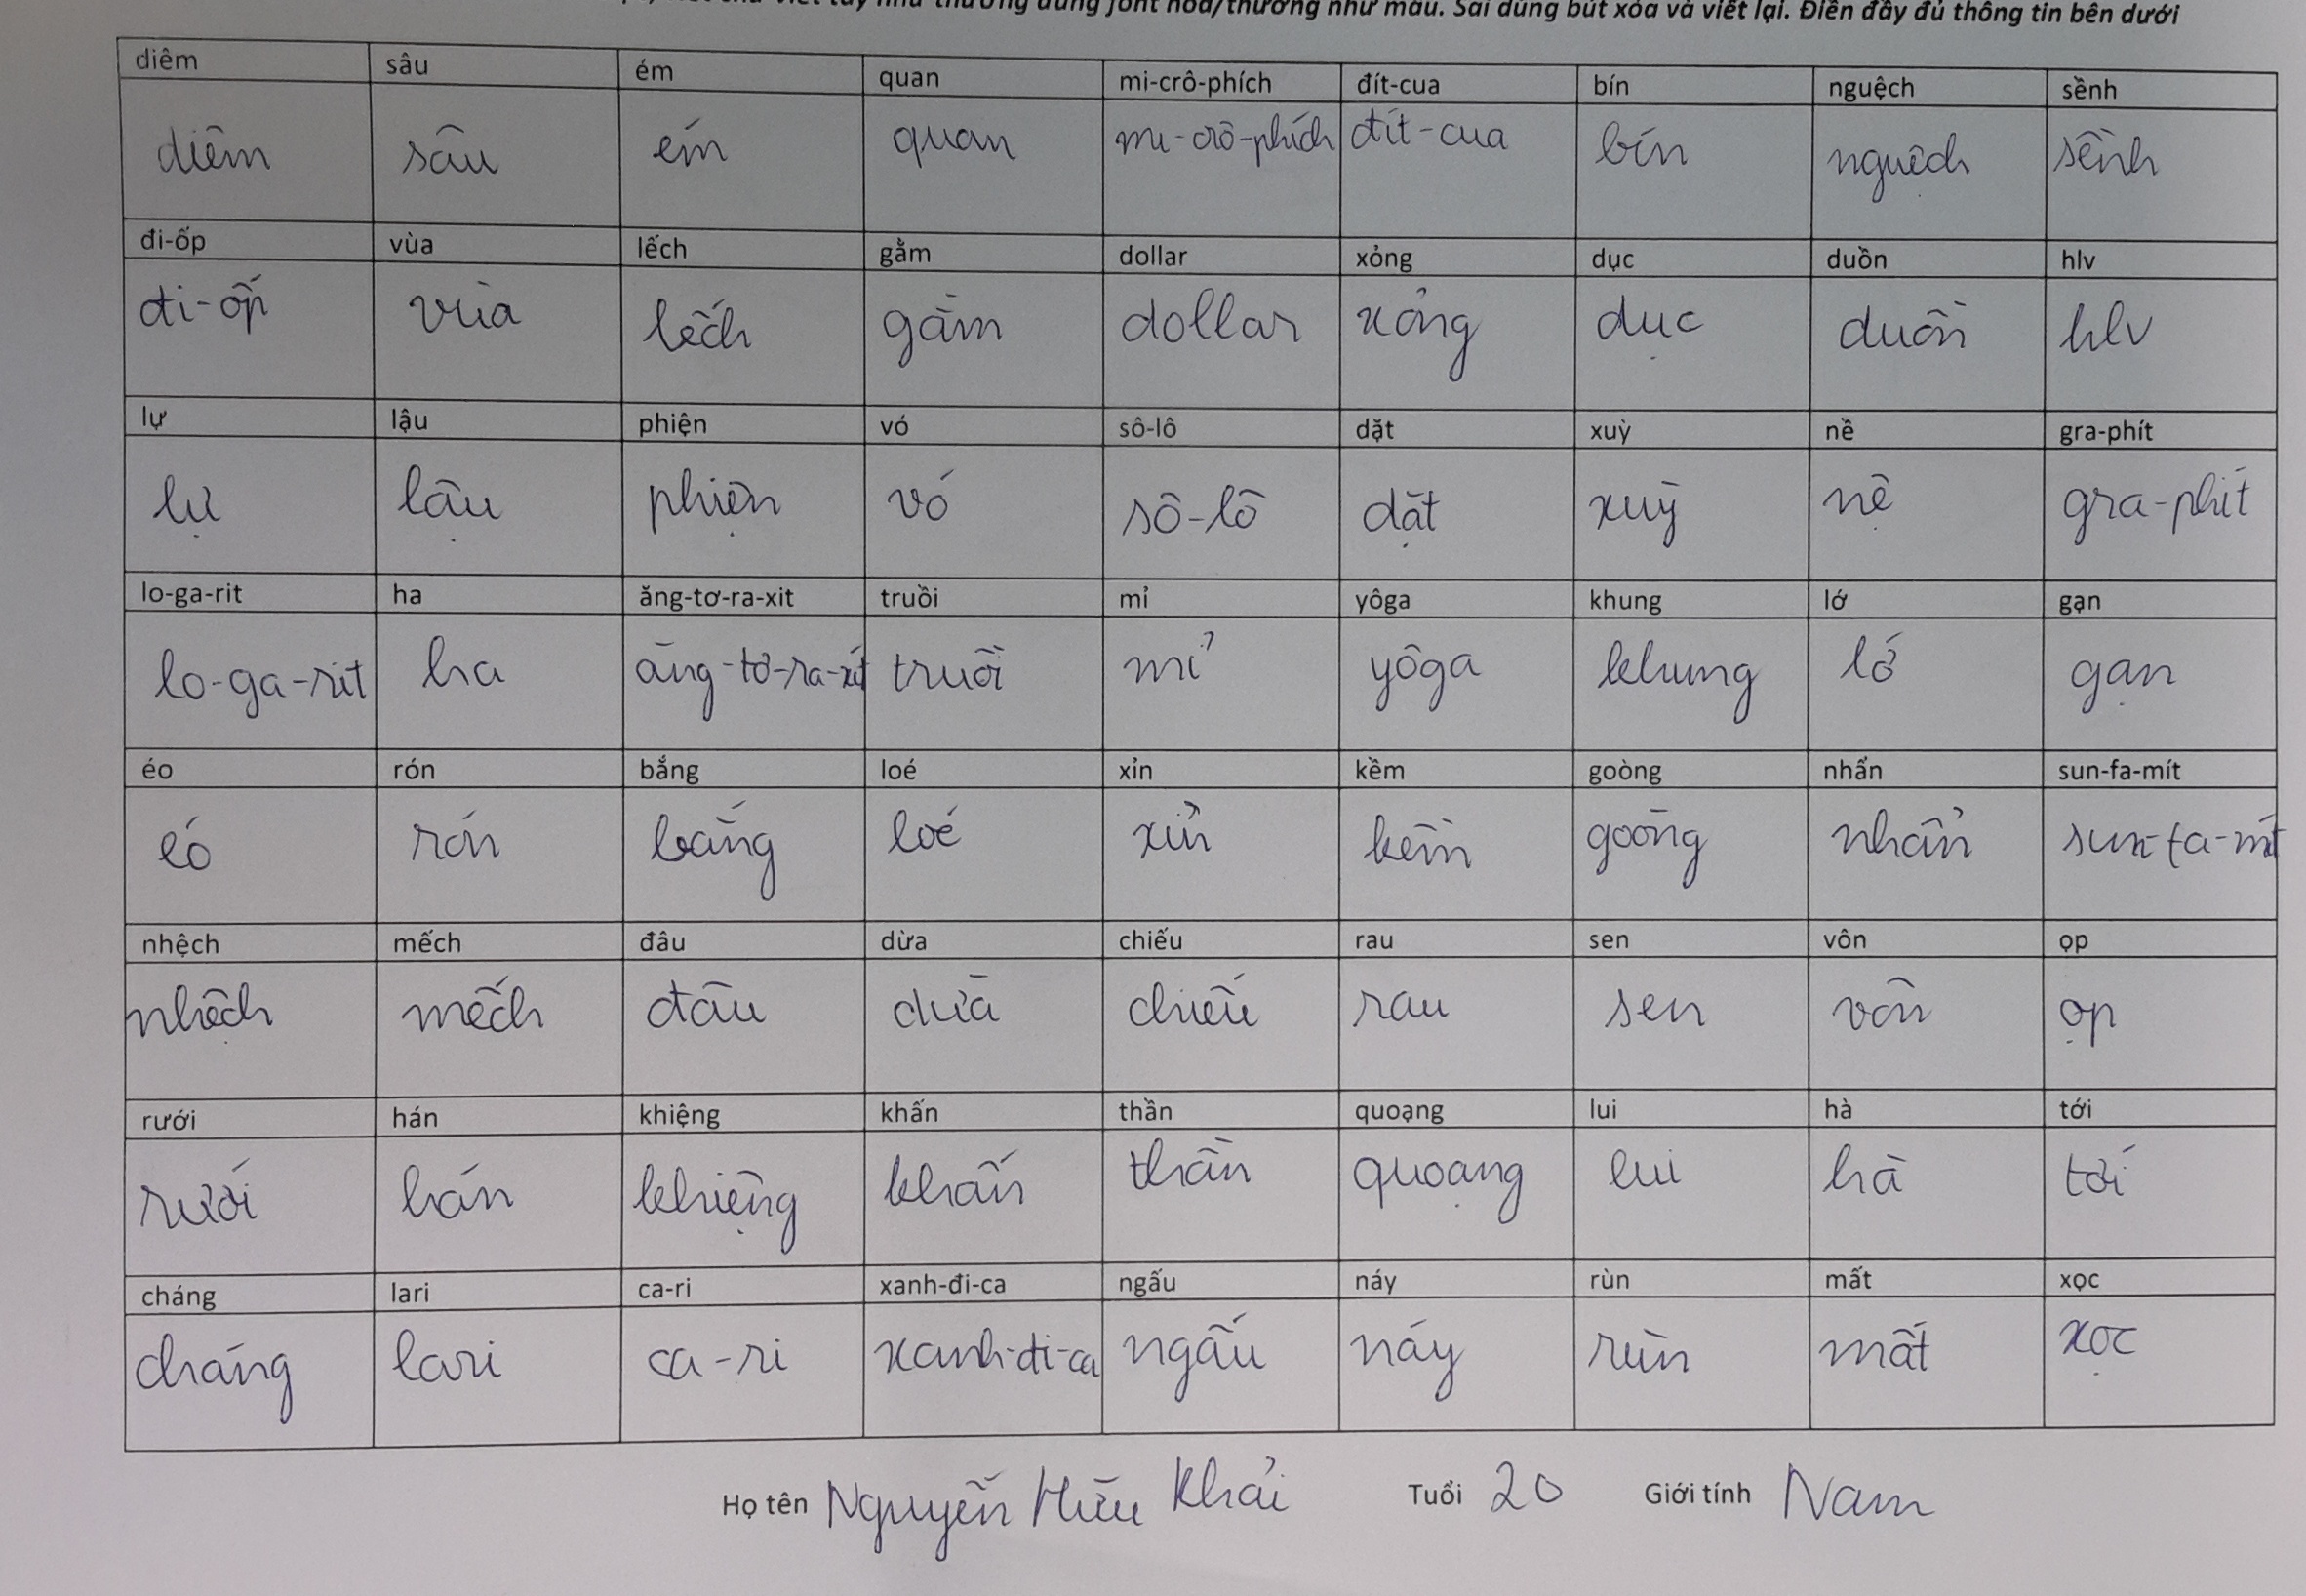 viết chữ viết tay như thường dùng font hoa/thường như mẫu. Sai dùng bút xóa và viết lại. Điền đầy đủ thông tin bên dưới
diêm sâu ém quan mi-crô-phích đít-cua bín nguệch sềnh
diêm sâu ém quan mi-crô-phích đít-cua bín nguệch sềnh
đi-ốp vùa lếch gằm dollar xỏng dục duồn hlv
đi-ốp vùa lếch gằm dollar xỏng dục duồn hlv
lự lậu phiện vó sô-lô dặt xuỳ nề gra-phít
lự lậu phiện vó sô-lô dặt xuỳ nệ gra-phít
lo-ga-rit ha ăng-tơ-ra-xit truồi mỉ yôga khung lớ gạn
lo-ga-rit ha ăng-tơ-ra-xit truồi mỉ yôga khung lớ gạn
éo rón bắng loé xỉn kềm goòng nhẩn sun-fa-mít
éo rón bắng loé xỉn kềm goòng nhẩn sun-fa-mít
nhệch mếch đâu dừa chiếu rau sen vôn ọp
nhệch mếch đâu dừa chiếu rau sen vôn ọp
rưới hán khiệng khấn thần quoạng lui hà tới
rưới hán khiệng khấn thần quoạng lui hà tới
cháng lari ca-ri xanh-đi-ca ngấu náy rùn mất xọc
cháng lari ca-ri xanh-đi-ca ngấu náy rùn mất xọc
Họ tên Nguyễn Hữu Khải Tuổi 20 Giới tính Nam